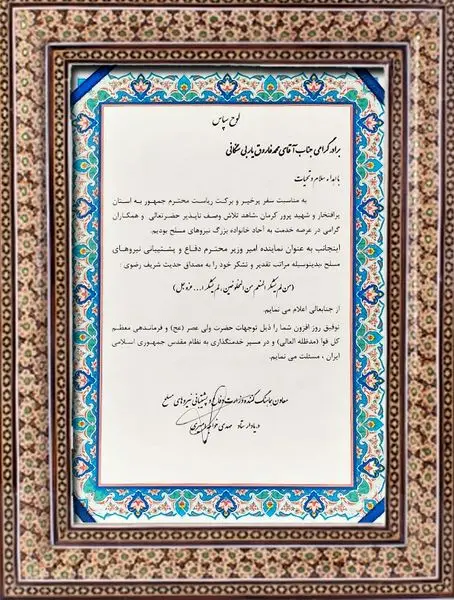 لوح سپاس
برادر گرامی جناب آقای محمد فاروق یاربی سگانی
با اهداء سلام و تحیات
به مناسبت سفر پرخیر و برکت ریاست محترم جمهور به استان
پرافتخار و شهید پرور کرمان ،شاهد تلاش وصف ناپذیر حضرتعالی و همکاران
گرامی در عرصه خدمت به آحاد خانواده بزرگ نیروهای مسلح بودیم.
اینجانب به عنوان نماینده امیر وزیر محترم دفاع و پشتیبانی نیروهای
مسلح ،بدینوسیله مراتب تقدیر و تشکر خود را به مصداق حدیث شریف رضوی :
(من لم یشکر المنعم من المخلوقین، لم یشکر ا... عزوجل)
از جنابعالی اعلام می نمایم.
توفیق روز افزون شما را ذیل توجهات حضرت ولی عصر (عج) و فرماندهی معظم
کل قوا (مدظله العالی) و در مسیر خدمتگذاری به نظام مقدس جمهوری اسلامی
ایران ، مسئلت می نمایم.
معاون هماهنگ کننده وزارت دفاع و پشتیبانی نیروهای مسلح
دریادار ستاد مهدی